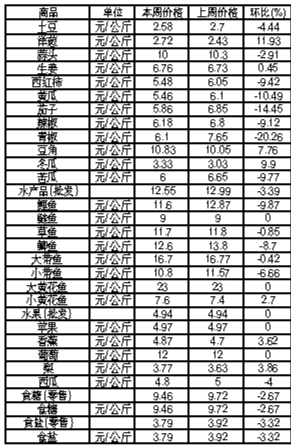 商品 单位 本周价格 上周价格 环比(%)
土豆 元/公斤 2.58 2.7 -4.44
洋葱 元/公斤 2.72 2.43 11.93
蒜头 元/公斤 10 10.3 -2.91
生姜 元/公斤 6.76 6.73 0.45
西红柿 元/公斤 5.48 6.05 -9.42
黄瓜 元/公斤 5.46 6.1 -10.49
茄子 元/公斤 5.86 6.85 -14.45
辣椒 元/公斤 6.18 6.8 -9.12
青椒 元/公斤 6.1 7.65 -20.26
豆角 元/公斤 10.83 10.05 7.76
冬瓜 元/公斤 3.33 3.03 9.9
苦瓜 元/公斤 6 6.65 -9.77
水产品{批发} 12.55 12.99 -3.39
鲤鱼 元/公斤 11.6 12.87 -9.87
鲢鱼 元/公斤 9 9 0
草鱼 元/公斤 11.7 11.8 -0.85
鲫鱼 元/公斤 12.6 13.8 -8.7
大带鱼 元/公斤 16.7 16.77 -0.42
小带鱼 元/公斤 10.8 11.57 -6.66
大黄花鱼 元/公斤 23 23 0
小黄花鱼 元/公斤 7.6 7.4 2.7
水果{批发} 4.94 4.94 0
苹果 元/公斤 4.97 4.97 0
香蕉 元/公斤 4.87 4.7 3.62
葡萄 元/公斤 12 12 0
梨 元/公斤 3.77 3.63 3.86
西瓜 元/公斤 4.8 5 -4
食糖{零售} 9.46 9.72 -2.67
食糖 元/公斤 9.46 9.72 -2.67
食盐{零售} 3.79 3.92 -3.32
食盐 元/公斤 3.79 3.92 -3.32